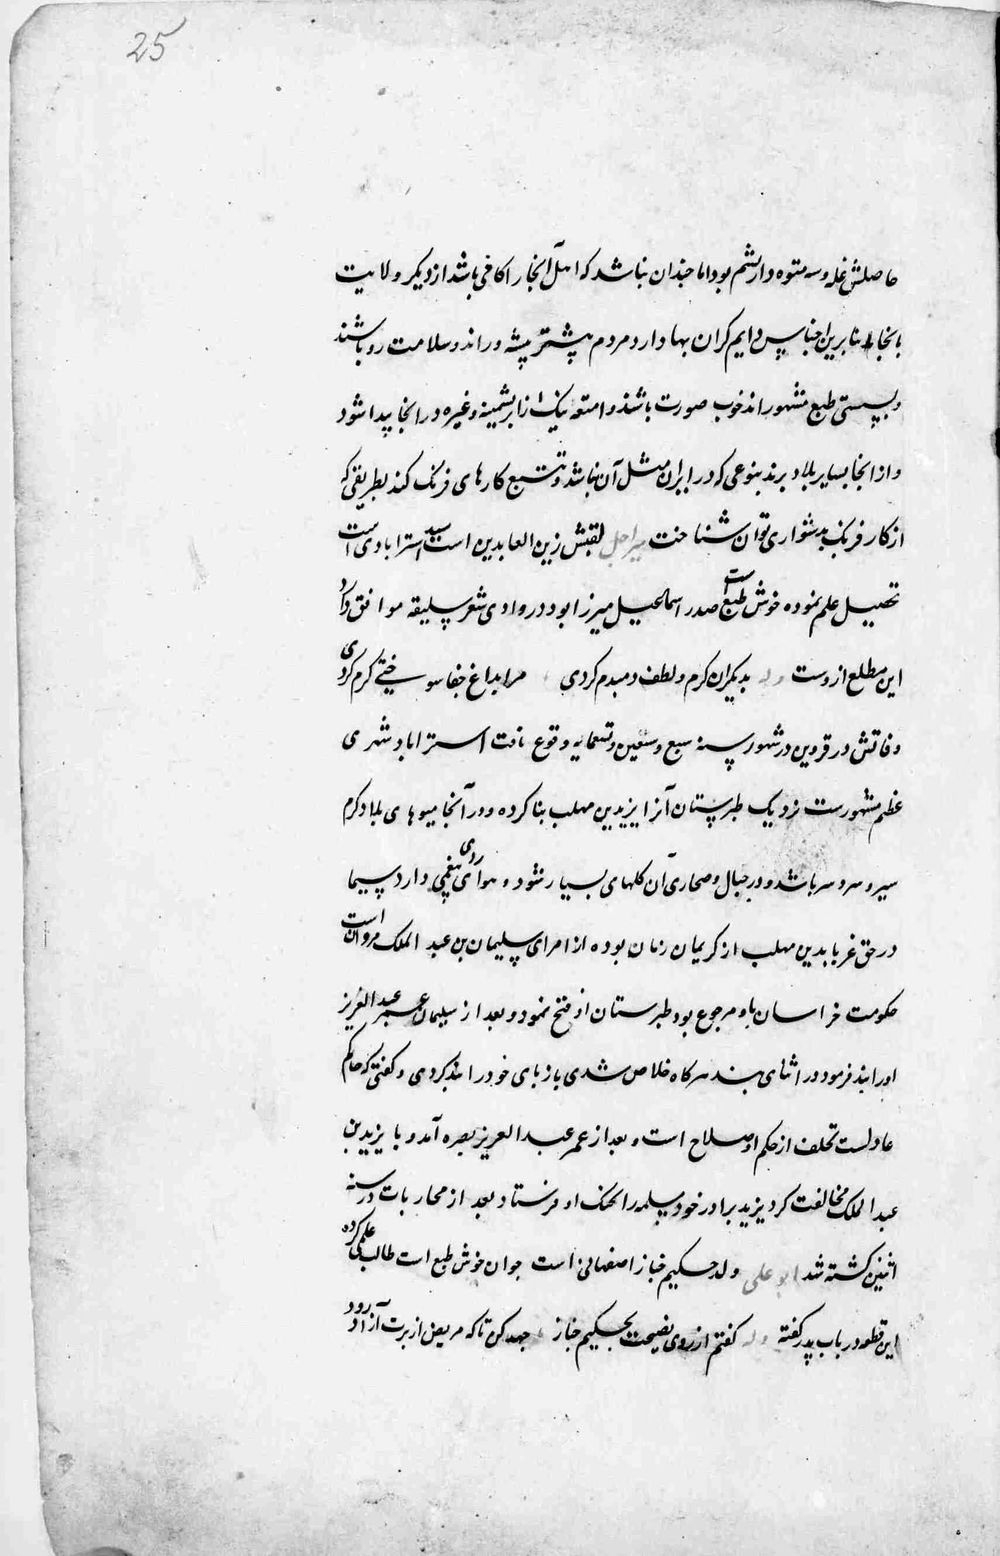 25
حاصلش غله و سه متوه و ابریشم بود اما چندان نباشد که اهل آنجا را کافی باشد از دیگر ولایت
بانجا بنابرین اجناس دایم کران بها دارد مردم بیشتر پیشه وراند و سلامت رو باشند
و بپستی طبع مشهوراند خوب صورت باشند و امتعه نیک از ابریشمینه و غیره در انجا پیدا شود
و از انجا بسایر بلاد برند بنوعی که در ایران مثل آن نباشد و تتبع کارهای فرنک کنند بطریقی که
از کار فرنک بدشواری توان شناخت میر اجل لقبش زین العابدین است سید استرابادی است
تحصیل علم نموده خوش طبع است صدر اسماعیل میرزا بود در وادی شعر سلیقه موافق دارد
این مطلع ازوست وله بدیکران کرم و لطف دمبدم کردی مرا بداغ جفا سوختی کرم کردی
وفاتش در قزوین در شهور سنه سبع و سبعین و تسعمایه وقوع یافت استراباد شهری
عظم مشهورست نزدیک طبرستان آنرا یزید بن مهلب بنا کرده و در آنجا میوهای بلاد کرم
سیر و سردسیر باشد و در جبال و صحاری آن کلهای بسیار شود و هوای ردی دارد سیما
در حق غربا یزید بن مهلب از کریمان زمان بوده از امرای سلیمان بن عبد الملک مروان است
حکومت خراسان باو مرجوع بود طبرستان او فتح نمود و بعد از سلیمان عمر عبد العزیز
اورا بند فرمود در اثنای بند هرکاه خلاص شدی باز پای خود را بند کردی و کفتی که حاکم
عادلست تخلف از حکم او صلاح است و بعد از عمر عبد العزیز ببصره آمد و با یزید بن
عبد الملک مخالفت کرد یزید برادر خود مسلمه را بجنک او فرستاد بعد از محاربات در سنه
اثنین کشته شد ابو علی ولد حکیم خباز اصفهانی است جوان خوش طبع است طالب علمی کرده
این قطعه در باب پدر کفته وله کفتم از روی نصیحت بحکیم خباز جهد کن تا که مریض از برت آزاد رود